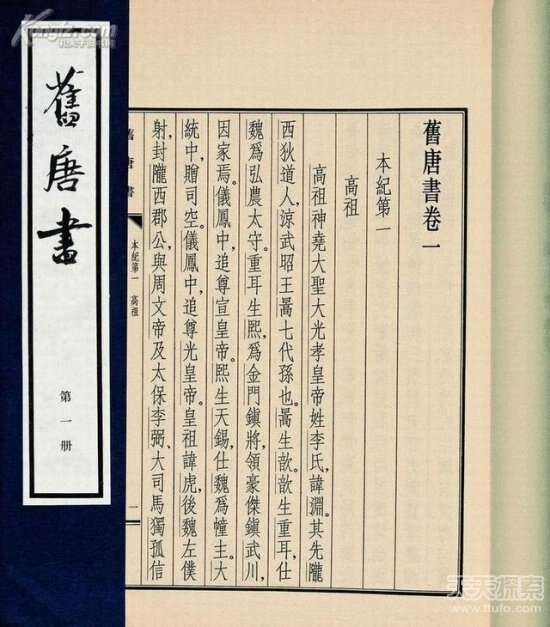 舊唐書卷一
本紀第一
高祖
高祖神堯大聖大光孝皇帝姓李氏,諱淵。其先隴
西狄道人,涼武昭王暠七代孫也。暠生歆。歆生重耳,仕
魏爲弘農太守。重耳生熙,爲金門鎮將,領豪傑鎮武川,
因家焉。儀鳳中,追尊宣皇帝。熙生天錫,仕魏爲幢主。大
統中,贈司空。儀鳳中,追尊光皇帝。皇祖諱虎,後魏左僕
射,封隴西郡公,與周文帝及太保李弼、大司馬獨孤信
舊唐書
本紀第一 高祖
一
舊唐書
第一册
天天探索
www.ttufo.com